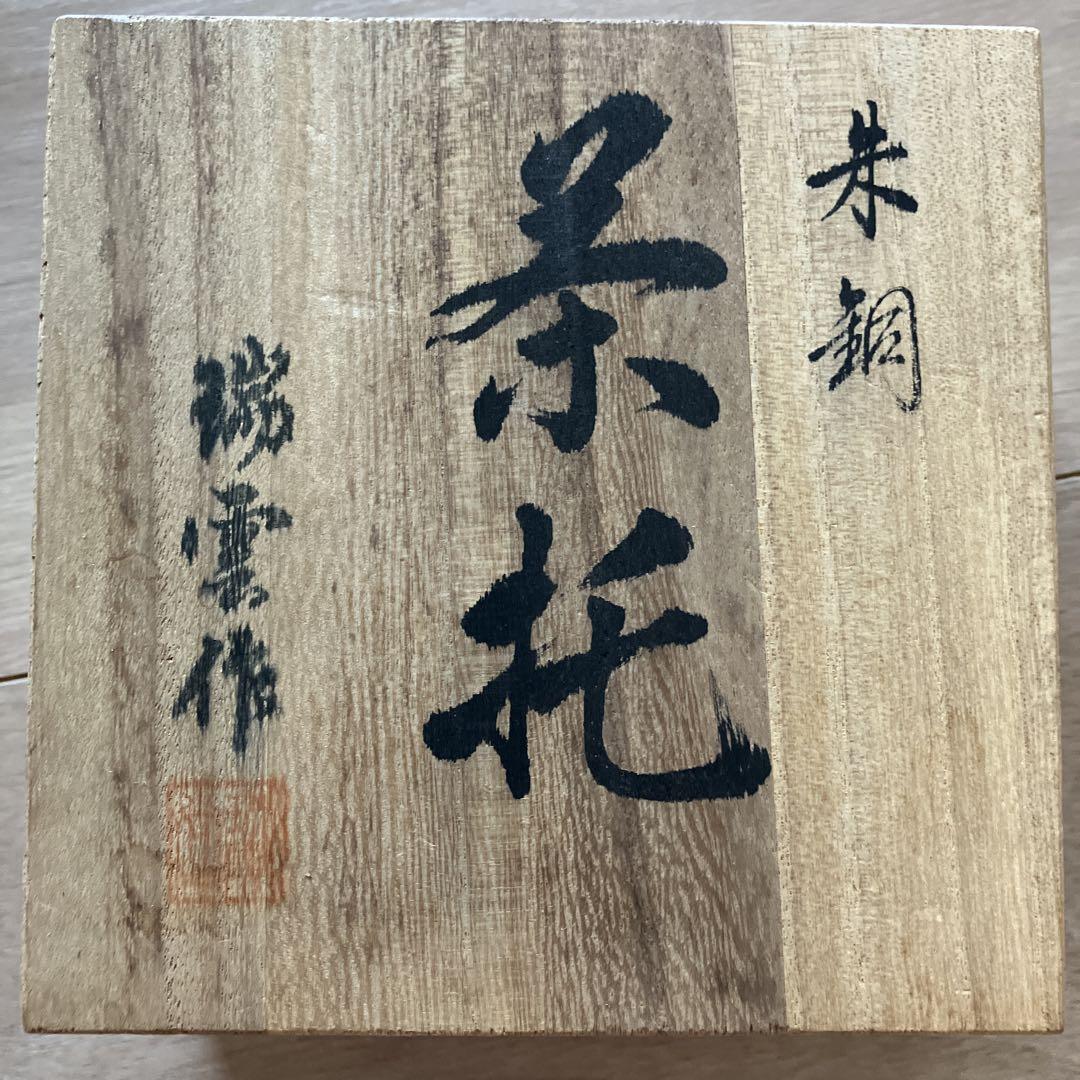 朱銅
茶托
瑞雲作